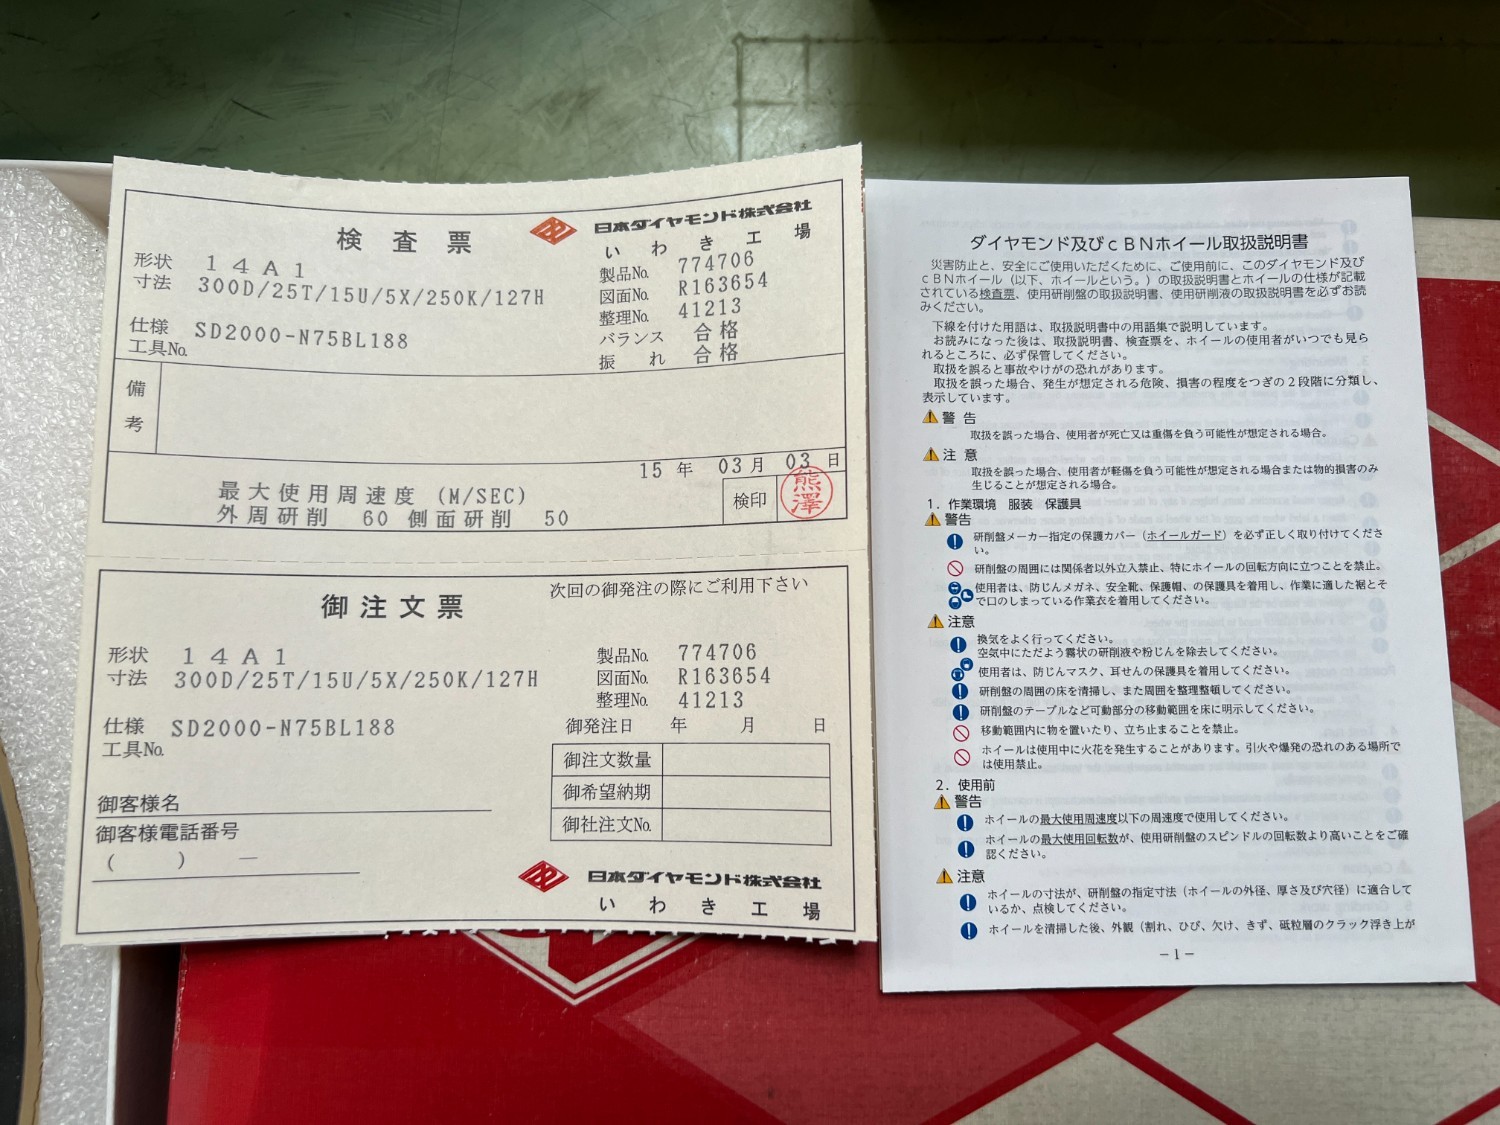 検査票
日本ダイヤモンド株式会社
いわき工場
形状 14A1
寸法 300D/25T/15U/5X/250K/127H
仕様 SD2000-N75BL188
工具No.
製品No. 774706
図面No. R163654
整理No. 41213
バランス 合格
振れ 合格
備考
15年 03月 03日
最大使用周速度 (M/SEC)
外周研削 60 側面研削 50
検印
熊澤
御注文票
次回の御発注の際にご利用下さい
形状 14A1
寸法 300D/25T/15U/5X/250K/127H
仕様 SD2000-N75BL188
工具No.
製品No. 774706
図面No. R163654
整理No. 41213
御発注日 年 月 日
御注文数量
御希望納期
御社注文No.
御客様名
御客様電話番号
( ) ―
日本ダイヤモンド株式会社
いわき工場
ダイヤモンド及びcBNホイール取扱説明書
災害防止と、安全にご使用いただくために、ご使用前に、このダイヤモンド及び
cBNホイール(以下、ホイールという。)の取扱説明書とホイールの仕様が記載
されている検査票、使用研削盤の取扱説明書、使用研削液の取扱説明書を必ずお読
みください。
下線を付けた用語は、取扱説明書中の用語集で説明しています。
お読みになった後は、取扱説明書、検査票を、ホイールの使用者がいつでも見ら
れるところに、必ず保管してください。
取扱を誤ると事故やけがの恐れがあります。
取扱を誤った場合、発生が想定される危険、損害の程度をつぎの2段階に分類し、
表示しています。
警告
取扱を誤った場合、使用者が死亡又は重傷を負う可能性が想定される場合。
注意
取扱を誤った場合、使用者が軽傷を負う可能性が想定される場合または物的損害のみ
生じることが想定される場合。
1.作業環境 服装 保護具
警告
研削盤メーカー指定の保護カバー(ホイールガード)を必ず正しく取り付けてくださ
い。
研削盤の周囲には関係者以外立入禁止、特にホイールの回転方向に立つことを禁止。
使用者は、防じんメガネ、安全靴、保護帽、の保護具を着用し、作業に適した裾とそ
で口のしまっている作業衣を着用してください。
注意
換気をよく行ってください。
空気中にただよう霧状の研削液や粉じんを除去してください。
使用者は、防じんマスク、耳せんの保護具を着用してください。
研削盤の周囲の床を清掃し、また周囲を整理整頓してください。
研削盤のテーブルなど可動部分の移動範囲を床に明示してください。
移動範囲内に物を置いたり、立ち止まることを禁止。
ホイールは使用中に火花を発生することがあります。引火や爆発の恐れのある場所で
は使用禁止。
2.使用前
警告
ホイールの最大使用周速度以下の周速度で使用してください。
ホイールの最大使用回転数が、使用研削盤のスピンドルの回転数より高いことをご確
認ください。
注意
ホイールの寸法が、研削盤の指定寸法(ホイールの外径、厚さ及び穴径)に適合して
いるか、点検してください。
ホイールを清掃した後、外観(割れ、ひび、欠け、きず、砥粒層のクラック浮き上が
－1－